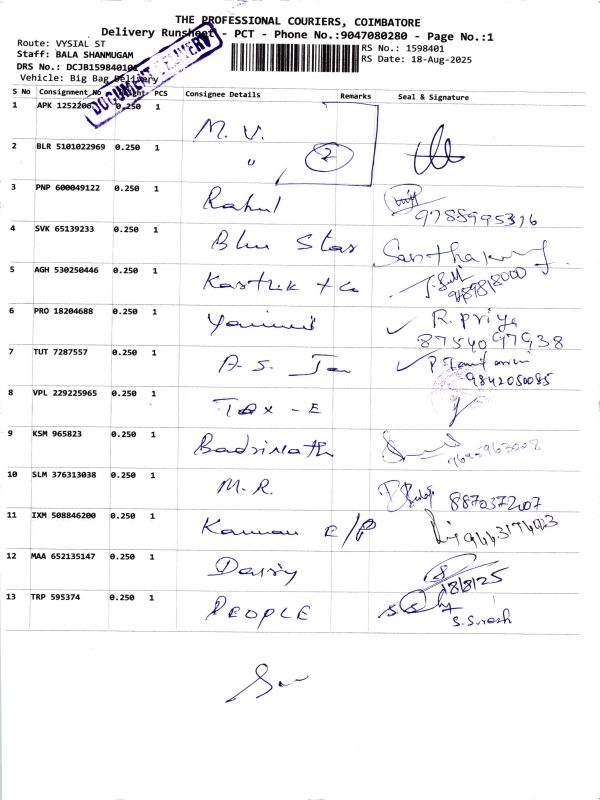 THE PROFESSIONAL COURIERS, COIMBATORE
Delivery Runsheet - PCT - Phone No.:9047080280 - Page No.:1
Route: VYSIAL ST
RS No.: 1598401
Staff: BALA SHANMUGAM
RS Date: 18-Aug-2025
DRS No.: DCJB159840101
Vehicle: Big Bag Delivery
DOCUMENT DELIVERY
S No Consignment No PCS Consignee Details Remarks Seal & Signature
1 APK 1252206 0.250 1 M. V.
2 BLR 5101022969 0.250 1 " 2
3 PNP 600049122 0.250 1 Rahul 9788995316
4 SVK 65139233 0.250 1 Blue Star
5 AGH 530250446 0.250 1 Karthik + Co
6 PRO 18204688 0.250 1 R. Priya
8754097938
7 TUT 7287557 0.250 1 A. S.
9842050085
8 VPL 229225965 0.250 1 TAX - E
9 KSM 965823 0.250 1 Badrinath
10 SLM 376313038 0.250 1 M. R. 8870372007
11 IXM 508846200 0.250 1 Kannan E/P
12 MAA 652135147 0.250 1 Dairy 18/8/25
13 TRP 595374 0.250 1 PEOPLE
S. Suresh